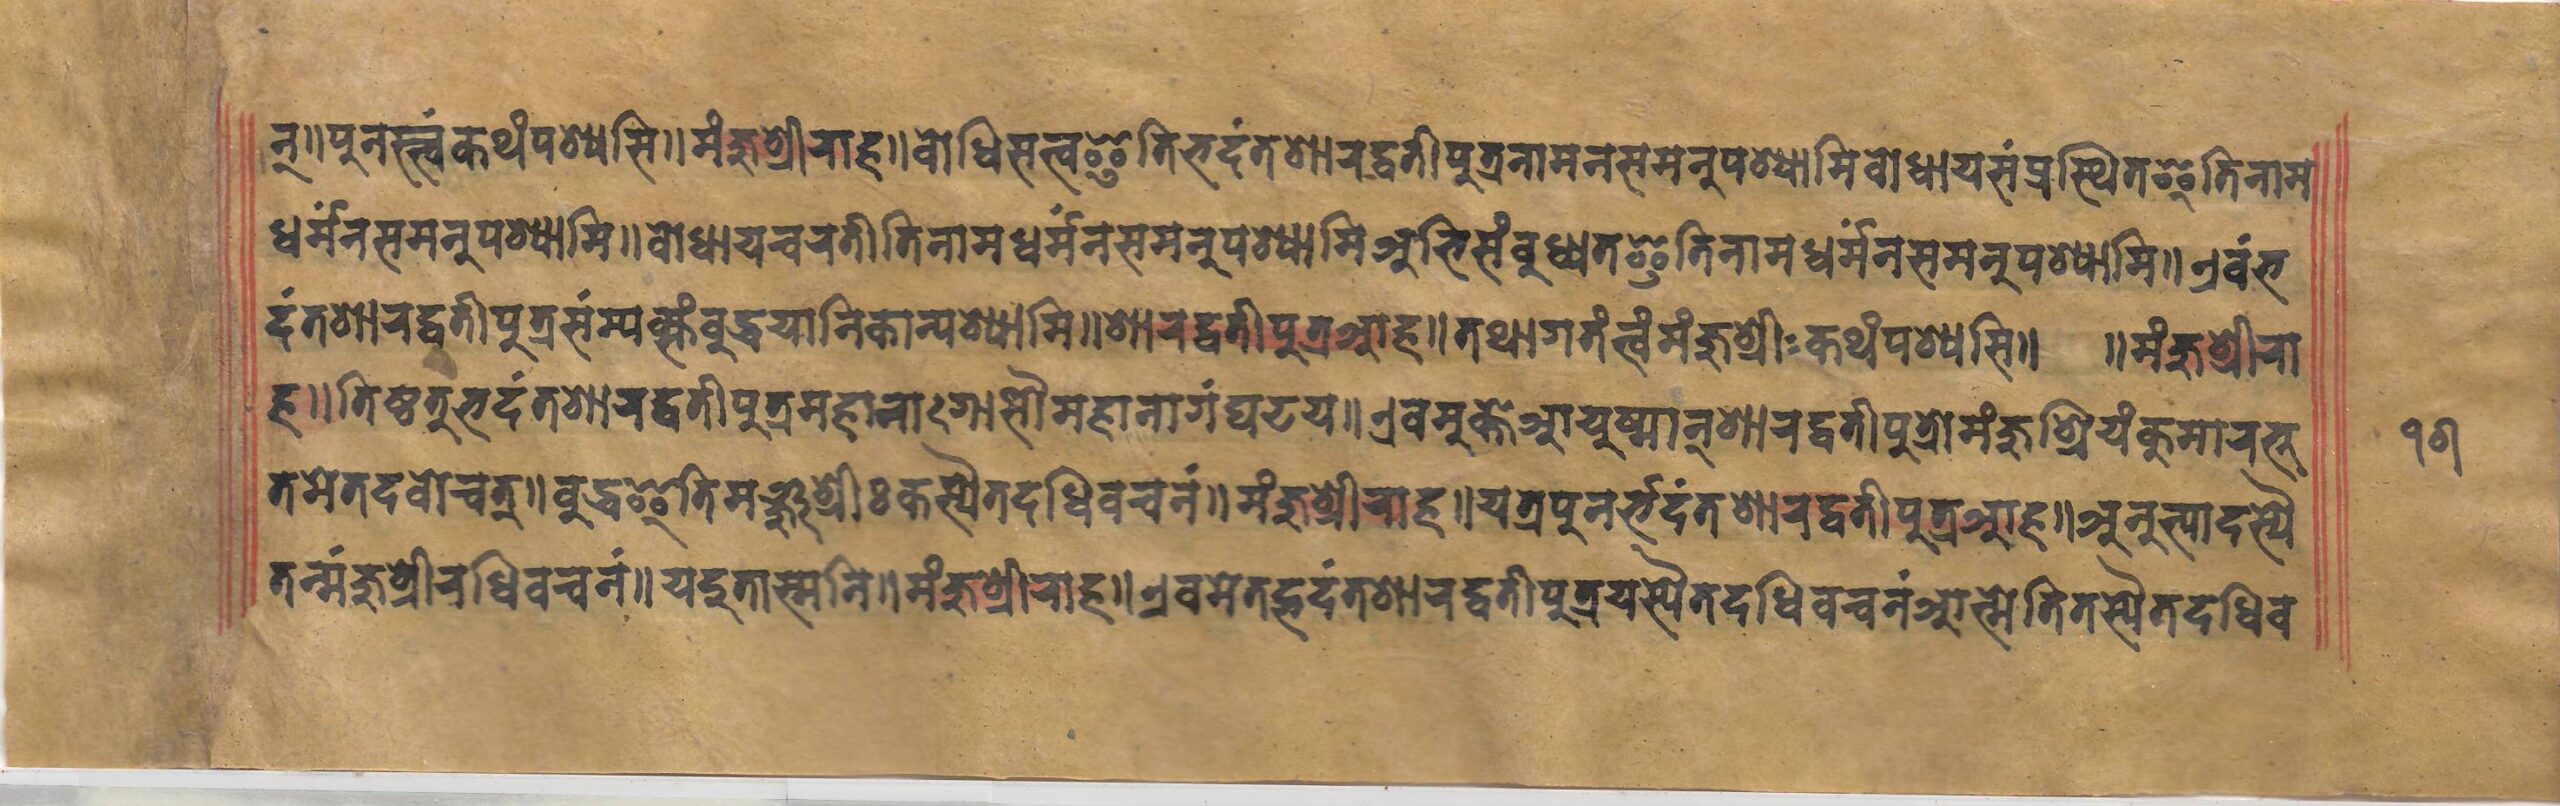 न्॥पुनस्त्वंकथंपश्यसि॥मंजुश्रीराह॥वोधिसत्वइतिभदंतशारद्वतीपुत्रनामनसमनुपश्यामिवोधायसंप्रस्थितइतिनाम
धर्मंनसमनुपश्यामि॥वोधायचरतीतिनामधर्मंनसमनुपश्यामिअभिसंवुध्यतइतिनामधर्मंनसमनुपश्यामि॥एवंभ
दंतशारद्वतीपुत्रसंम्यक्संवुद्धयानिकान्पश्यामि॥शारद्वतीपुत्रआह॥तथागतंत्वंमंजुश्रीःकथंपश्यसि॥ ॥मंजुश्रीरा
ह॥तिष्ठतुभदंतशारद्वतीपुत्रमहानागोसौमहानागंघटय॥एवमुक्तेआयुष्मान्शारद्वतीपुत्रोमंजुश्रियंकुमारभू
तमेतदवोचत्॥वुद्धइतिमञ्जुश्रीःकस्यैतदधिवचनं॥मंजुश्रीराह॥यत्रपुनर्भदंतशारद्वतीपुत्रआह॥अनुत्पादस्यै
तन्मंजुश्रीरधिवचनं॥यदुतात्मेति॥मंजुश्रीराह॥एवमेतद्भदंतशारद्वतीपुत्रयस्यैतदधिवचनंआत्मेतितस्यैतदधिव